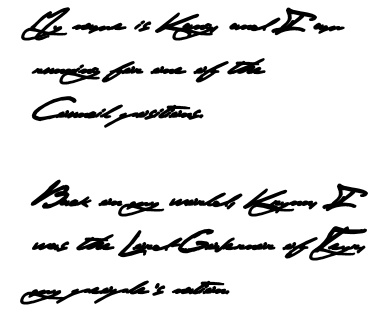 My name is Kenny and I am
running for one of the
Council positions.
Back on my world, Kaynny, I
was the Land Governor of
my people's nation.